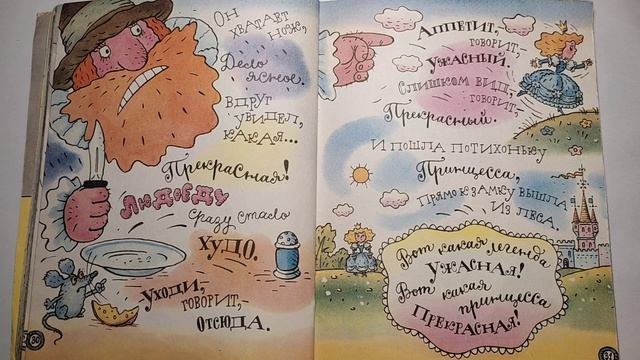 Он
хватает
нож,
Дело
ясное.
Вдруг
увидел,
какая...
Прекрасная!
Людоеду
сразу стало
худо.
Уходи,
говорит,-
отсюда.
30
Аппетит,
говорит,-
ужасный.
Слишком вид,
говорит,-
Прекрасный.
И пошла потихоньку
Принцесса,
Прямо к замку вышла
из леса.
Вот какая легенда
Ужасная!
Вот какая
принцесса
Прекрасная!
31